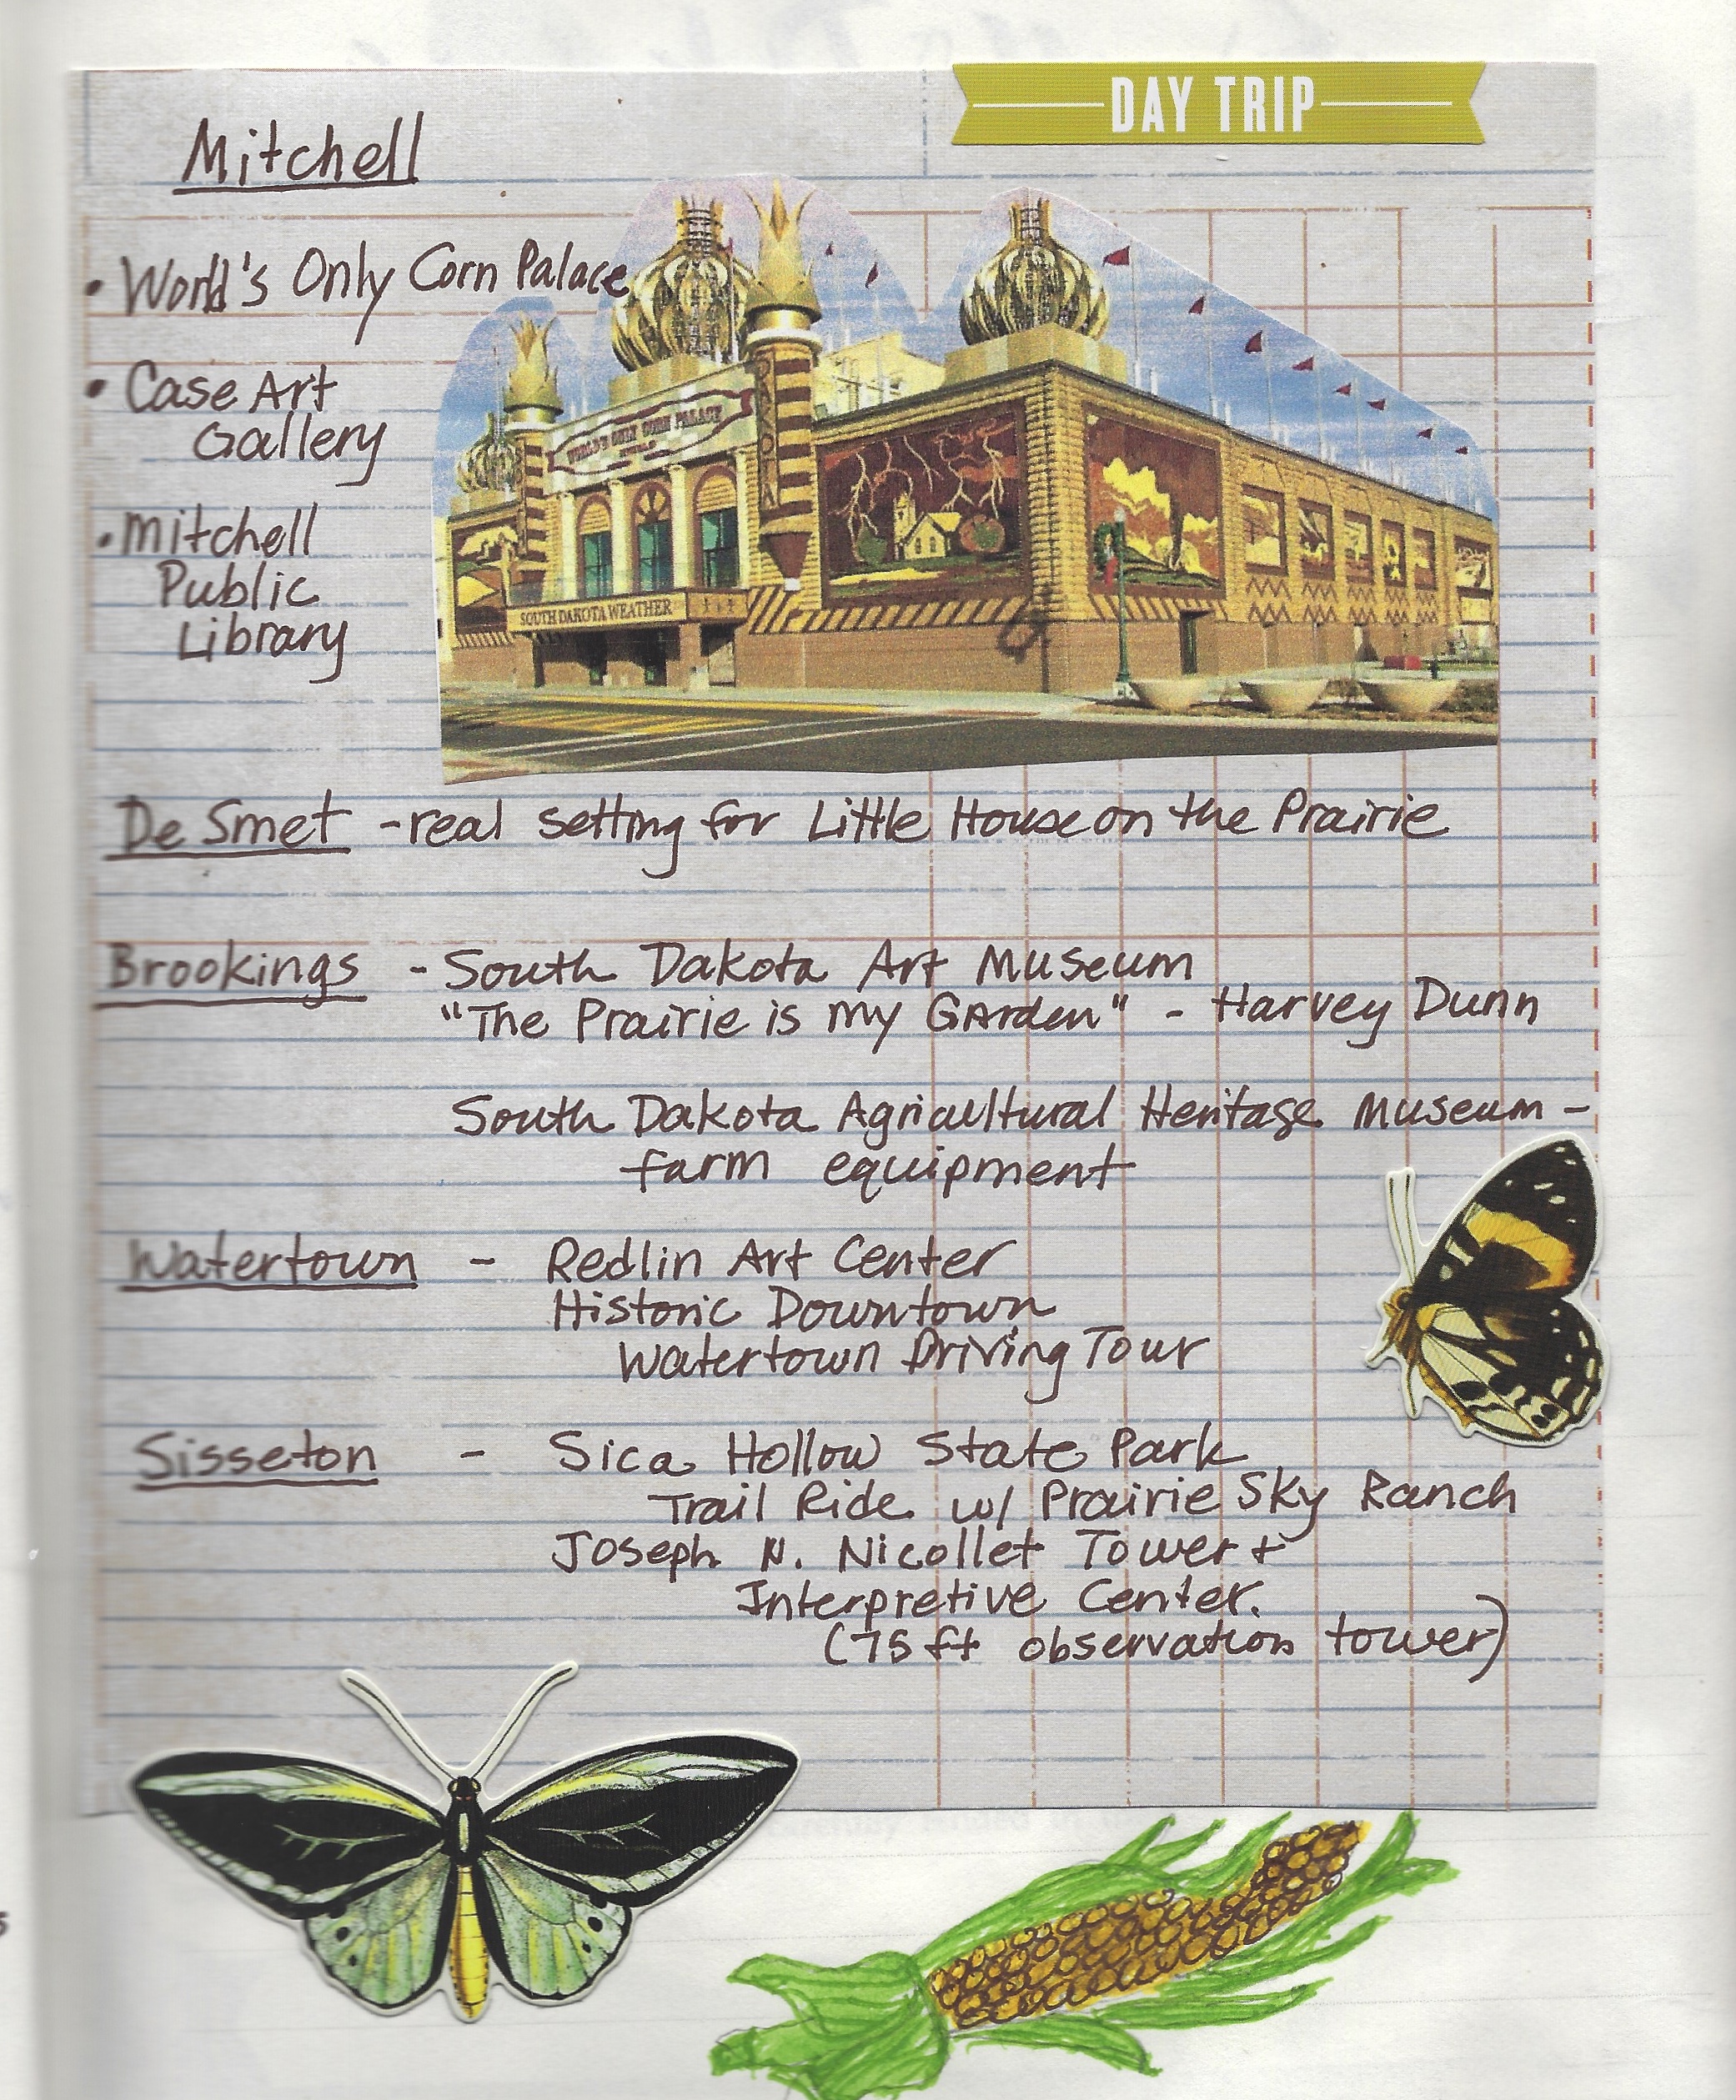 DAY TRIP
Mitchell
• World's Only Corn Palace
• Case Art
Gallery
• Mitchell
Public
Library
WORLD'S ONLY CORN PALACE
SOUTH DAKOTA WEATHER
De Smet - real setting for Little House on the Prairie
Brookings - South Dakota Art Museum
"The Prairie is my Garden" - Harvey Dunn
South Dakota Agricultural Heritage Museum -
farm equipment
Watertown - Redlin Art Center
Historic Downtown
Watertown Driving Tour
Sisseton - Sica Hollow State Park
Trail Ride w/ Prairie Sky Ranch
Joseph N. Nicollet Tower +
Interpretive Center.
(75 ft observation tower)